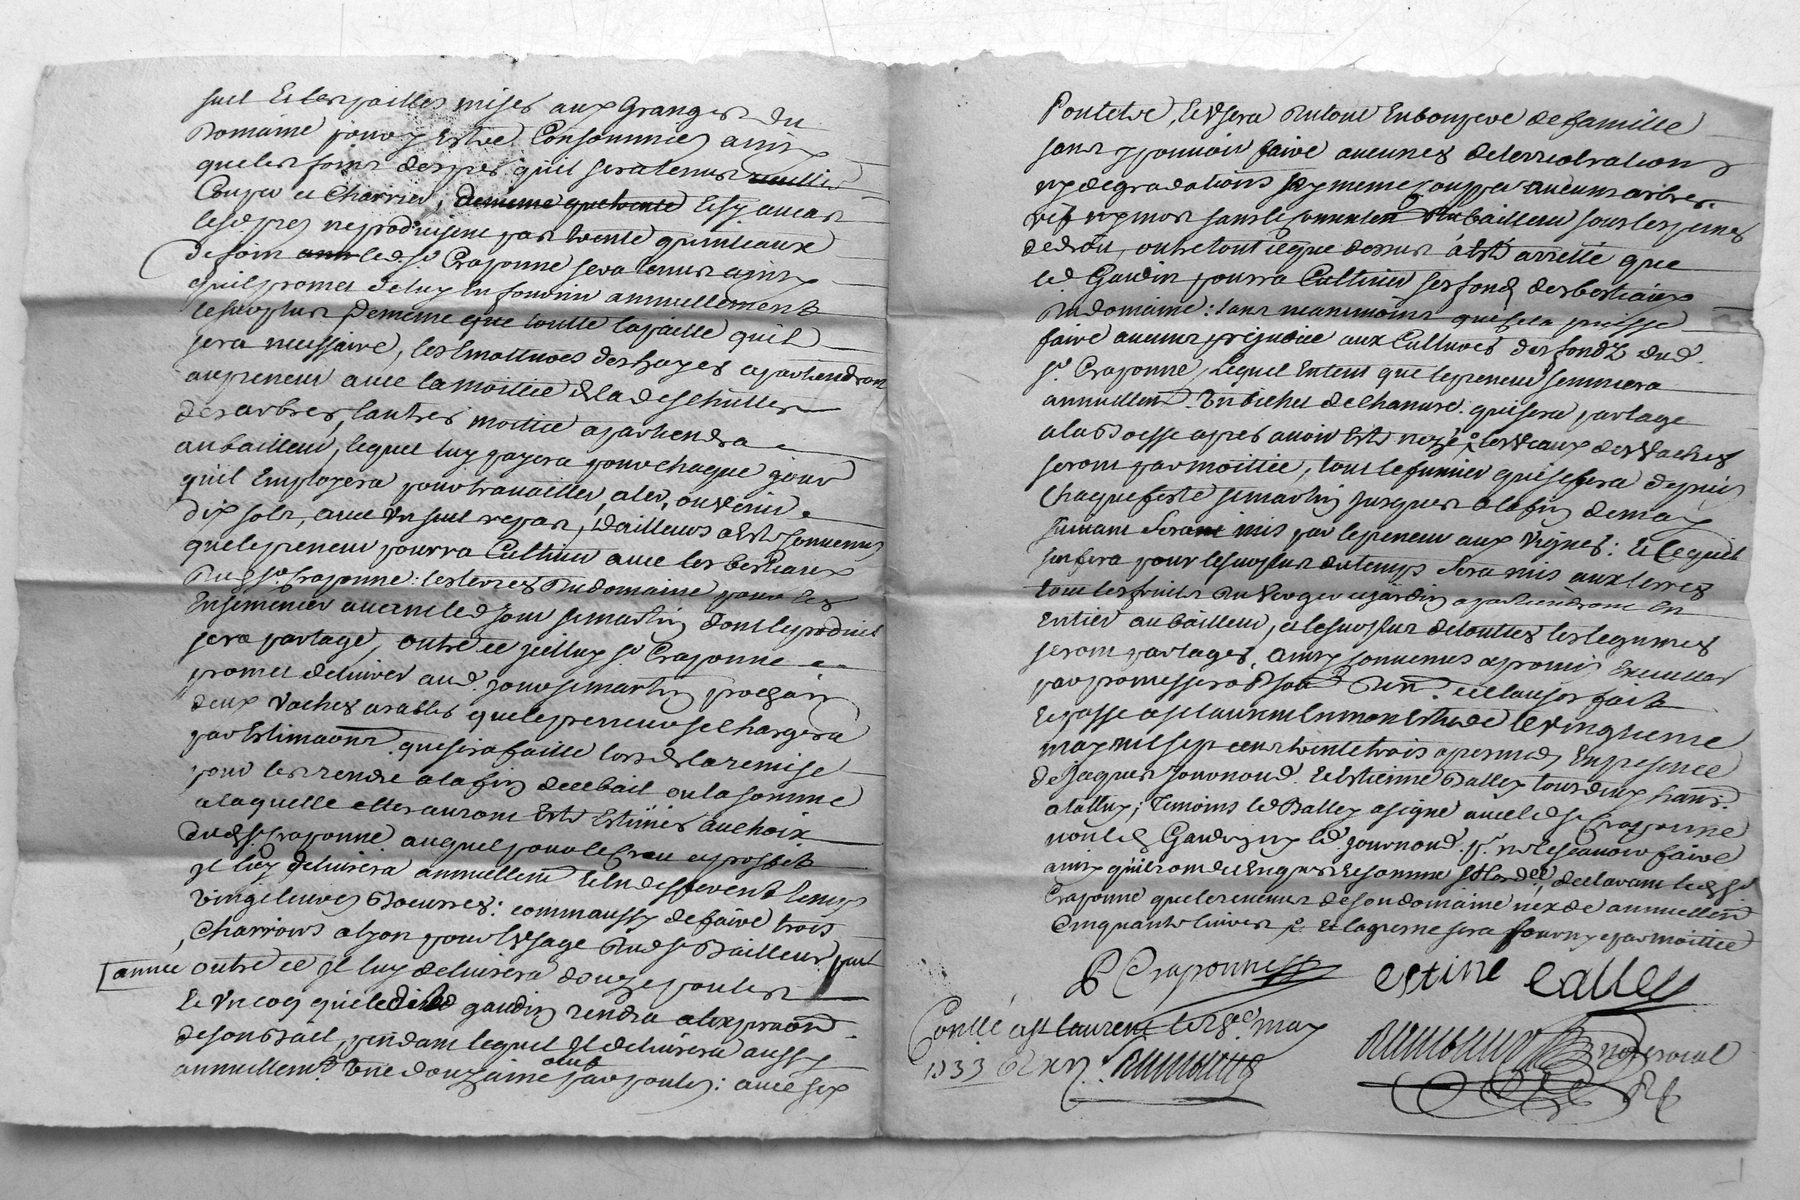 suel Et les pailles mises aux Granges du
Domaine pour y Estre Consommées ainsy
que les foins des prés quil sera tenus
Couper et Charrier, de meme que Et sy aucas
lesd. prez ne produisent pas trente quinteaux
de foin led. sr. Craponne sera tenus ainsy
quil promet de luy En fournir annuellement
le surplus de meme que toutte la paille quil
sera necessaire, les Emottures des hayes apartiendron
au preneur avec la moittié de la des
des arbres, lautre moittié apartiendra
au bailleur, lequel luy payera pour chaque jour
quil Employera pour travailler, aler, ou venir
dix sols, avec Un seul repas, dailleurs a Esté Convenus
que le preneur pourra Cultiver avec les bestiaux
Dud. sr. Craponne: les terres Du domaine pour les
Ensemencer avant led. jour st martin dont le produit
sera partagé, outre ce jcelluy sr. Craponne
promet delivrer aud. jour st martin prochain
deux Vaches arables que le preneur se Chargera
par Estimaon. que sera faitte lors de la remise
pour les rendre a la fin de ce bail ou la somme
a laquelle elles auront Esté Estimés au choix
Dud. sr. Craponne auquel pour le Crou et profit
Jl luy delivrera annuellemt. Et en differents temps
Vingt livres Boeurres: comm aussy de faire trois
Charrois a lyon pour l'Usage Dud. sr. Bailleur par
année outre ce Jl luy delivrera douze poulets
Et Un coq que le dit gaudin rendra a lexpiraon.
de son Bail, pendant lequel Jl delivrera aussy
annuellemt. Une douzaine œufs par poules: avec six
Poulets, Et Usera Du tout En bon pere de famille
sans y pouvoir faire aucunes deterriorations
ny degradations sy meme Coupper aucuns arbres
vif ny mort sans le Du bailleur sous les peines
de droit, outre tout ce que dessus a Esté arresté que
led. Gaudin pourra Cultiver ses fonds des bestiaux
Du domaine: sans neanmoins que Cela puisse
faire aucuns prejudice aux Cultures des fondz dud.
sr. Craponne, Lequel Entent que le preneur semmera
annuellemt. Un bichet de Chanvre. qui sera partagé
a la Boesse apres avoir Esté nezé les Veaux des Vaches
seront par moittié, tout le fumier qui se fera depuis
Chaque feste st martin jusques a la fin de may
suivant Seront mis par le preneur aux Vignes: Et Ce quil
sen fera pour le surplus du temps Sera mis aux terres
tous les fruits Du Verger et jardin apartiendront En
Entier au bailleur, et le surplus de touttes les legumes
seront partagés, Ainsy Convenus et promis Executer
par promesse oblion. Renon. et clauses fait
Et passé a st laurent En mon Estude le Vingtieme
may mil sept cent trente trois apres midy En presence
de Jacques Journoud Et Estienne Balley tous deux hants.
a lattuy; Temoins led. Balley a signé avec led. sr. Craponne
non led. Gaudin ny led. Journoud pr. ne le scavoir faire
ainsy quil ont dit Enquis Et sommé declarant led. sr
Craponne que le revenus de son domaine nexede annuellemt.
Cinquante livres Et la presente sera fourny par moittié
P Craponne estine balley
Conllé a st laurent le 28e. may
1733
notr. royal